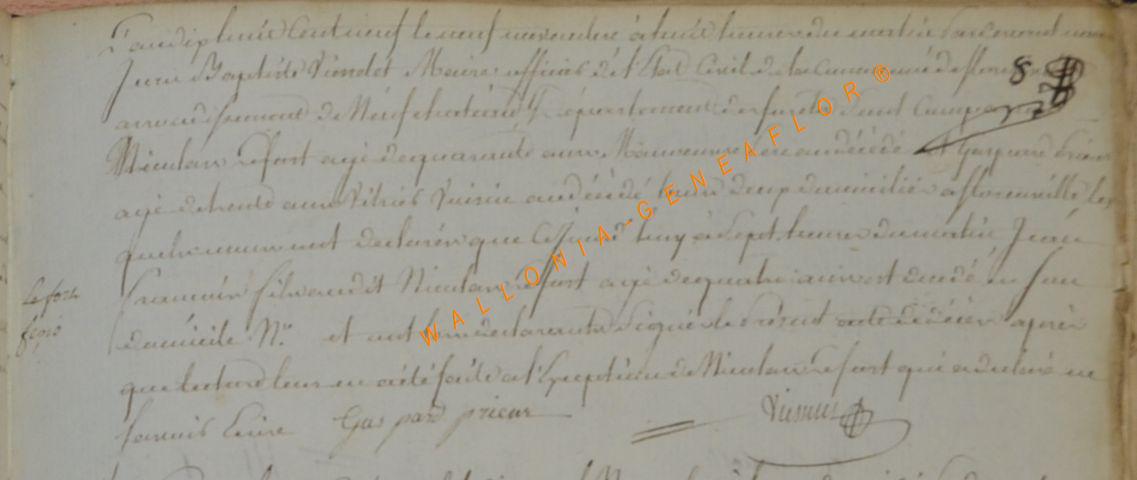 L'an dix huit Cent neuf le neuf novembre à huit heures du matin Pardevant nous
Jean Baptiste Maire officier de l'Etat Civil de la Commune de florenville
8
arrondissement de Neufchateau Département des forets Sont Comparu
Nicolas Lefort agé de quarante ans Manoeuvre Pere au décédé et Gaspard Prieur
agé de trente ans Voisin au décédé tous deux domiciliés a florenville Les
quels nous ont declarés que Cejourd'huy a Sept heures du matin Jean
Lefort
françois fils audit Nicolas Lefort agé de quatre ans est decedé en Son
domicile N.° et ont les declarants Signés le présent acte de décès après
que lecture leur en a été faite a l'Exception de Nicolas Lefort qui a declaré ne
Savoir Ecrire Gaspard prieur
WALLONIA-GENEAFLOR©